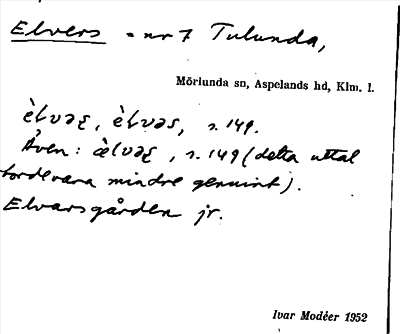 Elvers = nr 7 Tulunda,
Mörlunda sn, Aspelands hd, Klm. l.
èlvəʂ, èlvəs, s. 149.
Även: æ̀lvəʂ, s. 149 (detta uttal
torde vara mindre genuint).
Elvarsgården jr.
Ivar Modéer 1952